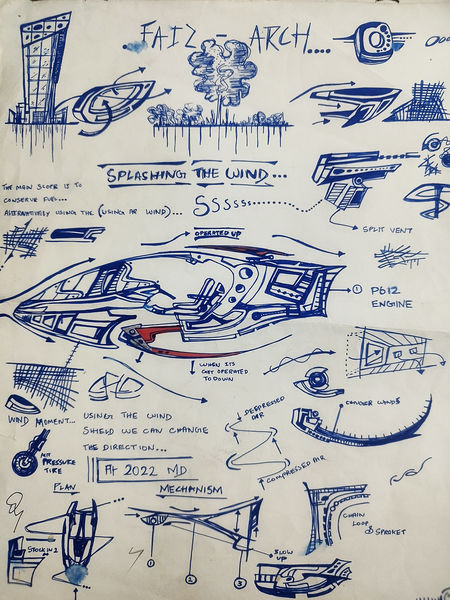 .FAIZ - ARCH....
SPLASHING THE WIND...
THE MAIN SCOPE IS TO
CONSERVE FUEL...
ALTERNATIVELY USING THE (USING AR WIND)...
SSssss
SPLIT VENT
OPERATED UP
① P612
ENGINE
WHEN ITS
GET OPERATED
TO DOWN
WIND MOMENT...
USING THE WIND
SHIELD WE CAN CHANGE
THE DIRECTION...
PRESSURE
TIRE
AF 2022 MD
DEPRESSED
AIR
COMPRESSED AIR
PLAN
MECHANISM
STOCK IN 2
1
2
3
SLOW
UP
CHAIN
LOOP
SPROKET